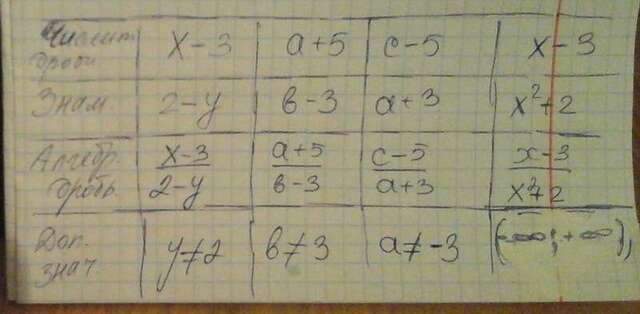 Числит. дроби x-3 a+5 c-5 x-3
Знам. 2-y b-3 a+3 x²+2
Алгебр. дробь x-3 a+5 c-5 x-3
2-y b-3 a+3 x²+2
Доп. знач y≠2 b≠3 a≠-3 (-∞;+∞)